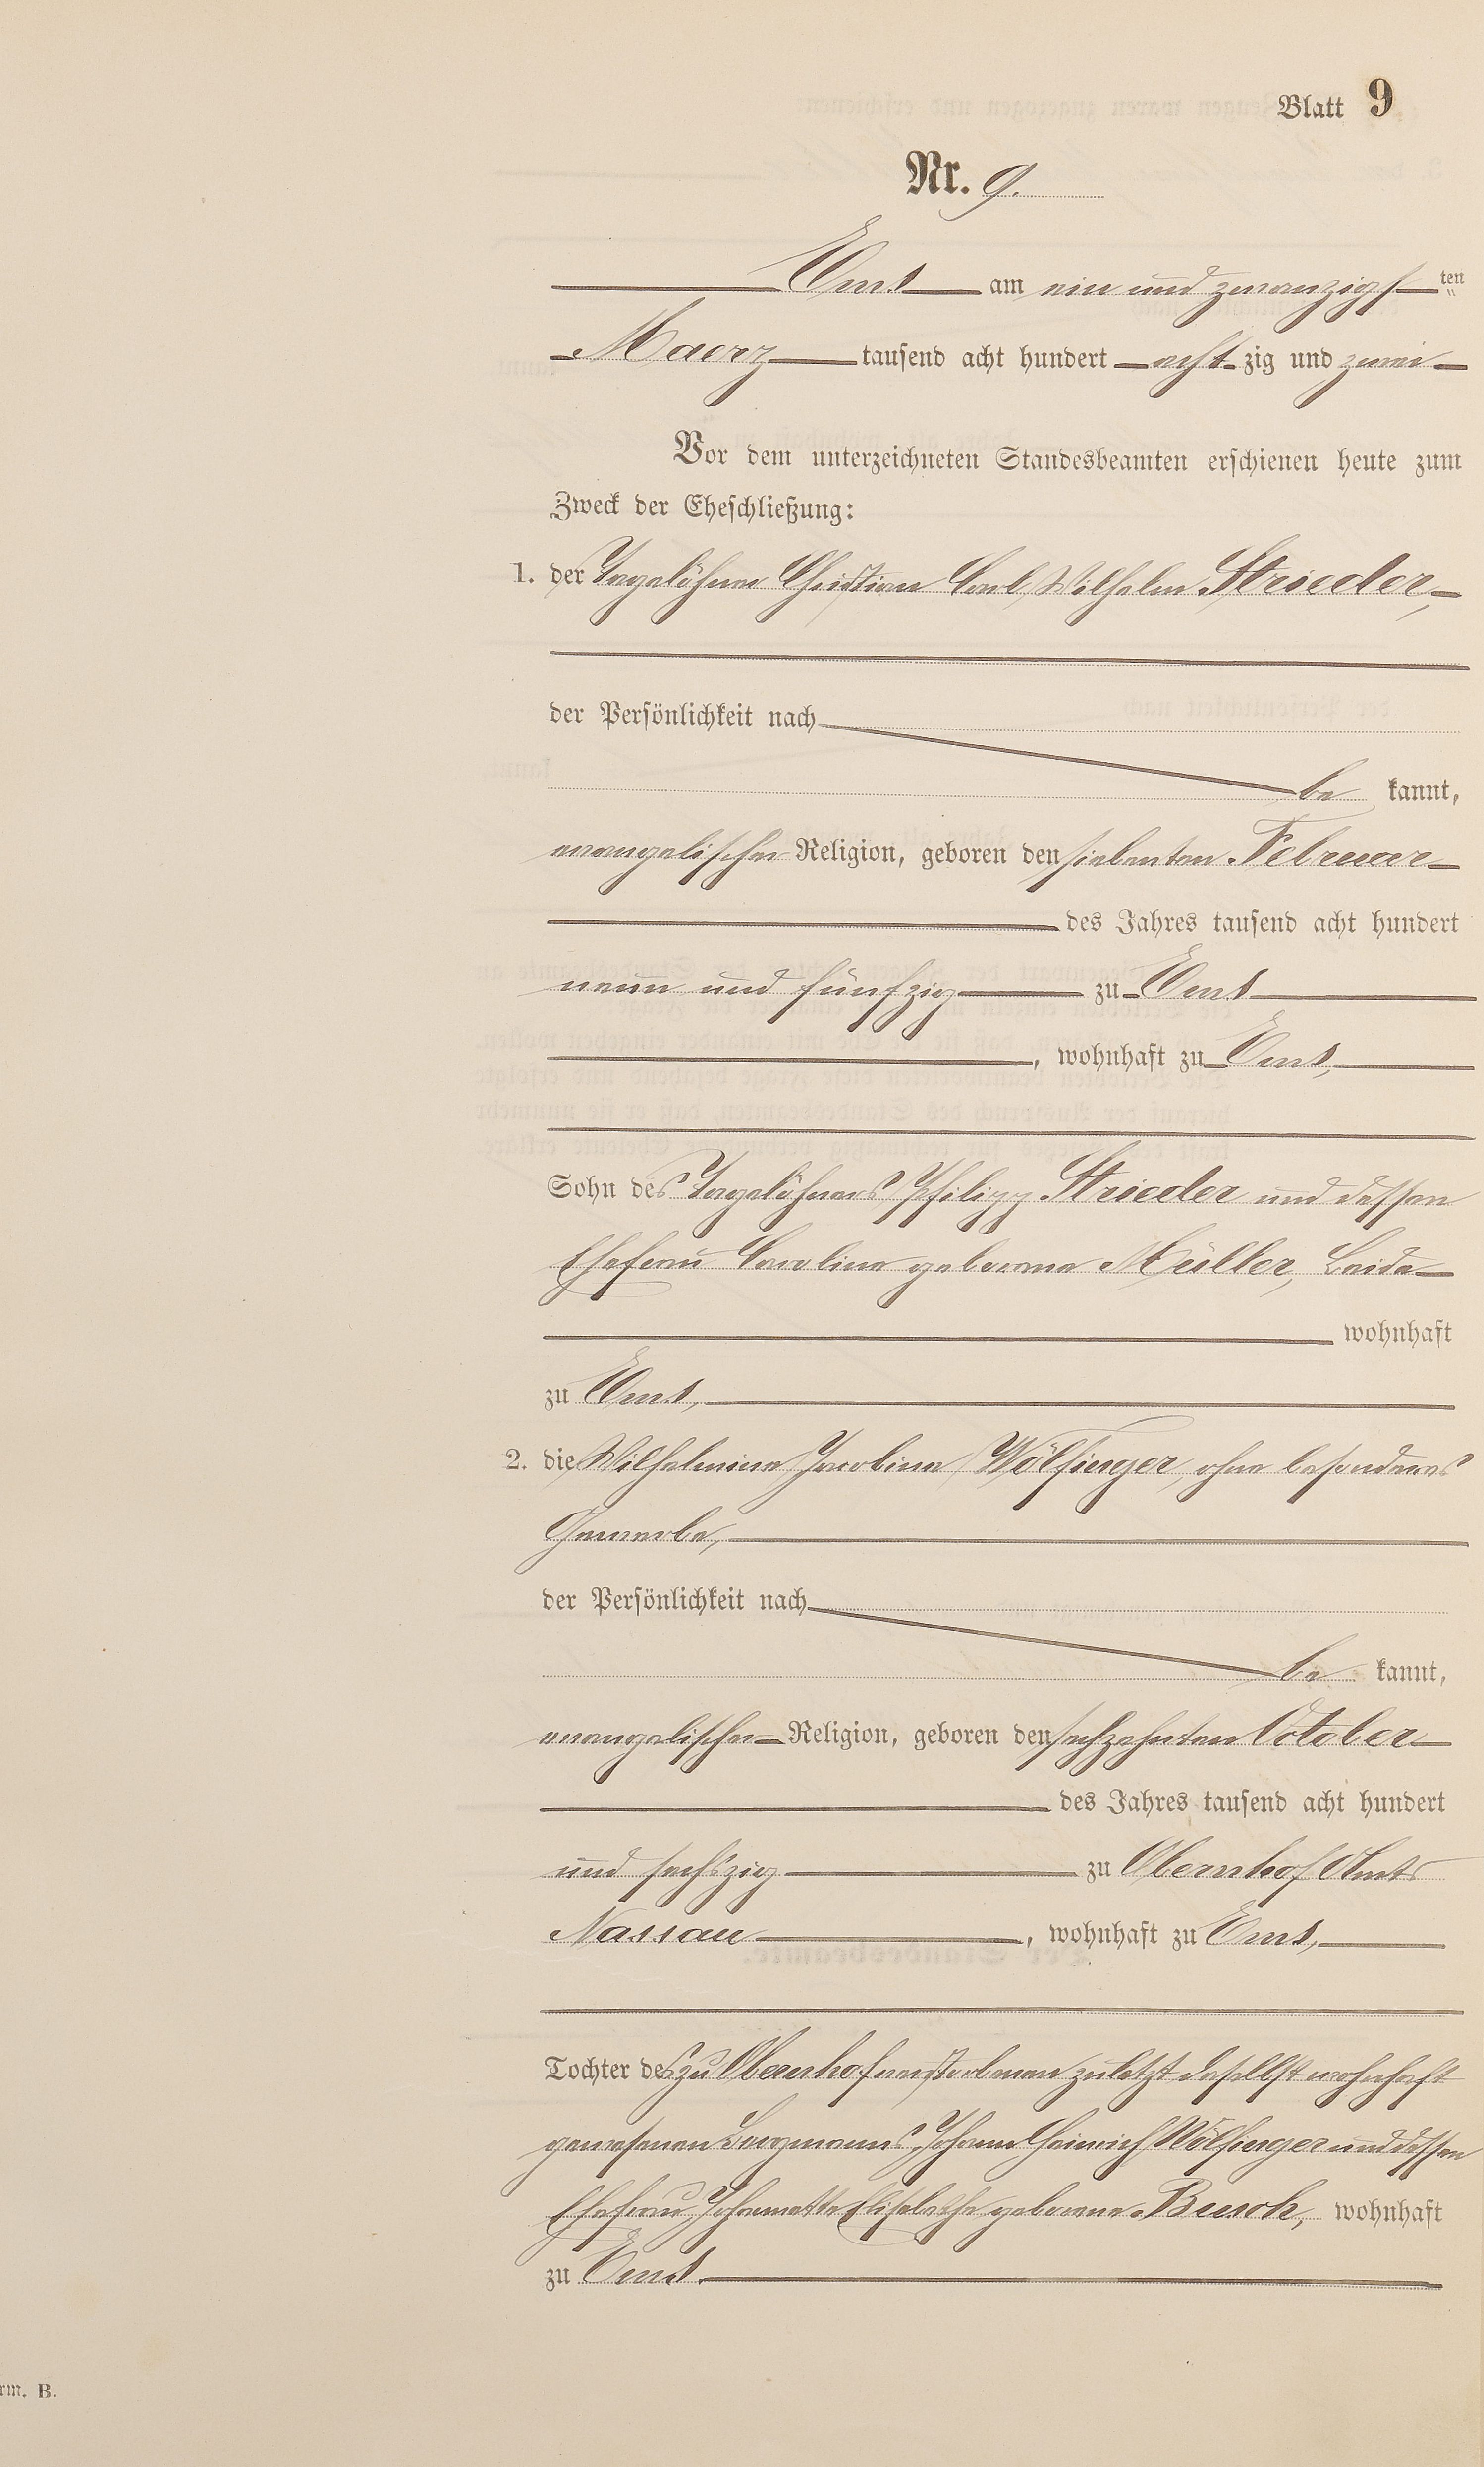 Blatt 9
Nr. 9.
Ems am ein und zwanzigsten
Maerz tausend acht hundert acht zig und zwei
Vor dem unterzeichneten Standesbeamten erschienen heute zum
Zweck der Eheschließung:
1. der Tagelöhner Christian Carl Wilhelm Strieder,
der Persönlichkeit nach
be kannt,
evangelischer Religion, geboren den siebenten Februar
des Jahres tausend acht hundert
neun und fünfzig zu Ems
, wohnhaft zu Ems,
Sohn des Tagelöhners Philipp Strieder und dessen
Ehefrau Caroline geborene Müller, beide
wohnhaft
zu Ems,
2. die Wilhelmine Jacobine Wölfinger, ohne besonderes
Gewerbe,
der Persönlichkeit nach
be kannt,
evangelischer Religion, geboren den sechzehnten October
des Jahres tausend acht hundert
und sechszig zu Obernhof Amts
Nassau , wohnhaft zu Ems,
Tochter des zu Obernhof verstorbenen zuletzt daselbst wohnhaft
gewesenen Bergmanns Johann Heinrich Wölfinger und dessen
Ehefrau Johannette Elisabethe geborene Busch, wohnhaft
zu Ems.
rm. B.